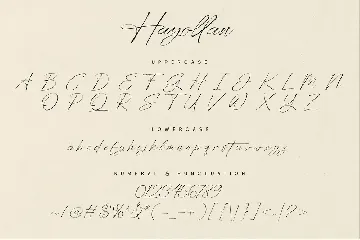 Hayollan
UPPERCASE
A B C D E F G H I J K L M N
O P Q R S T U V W X Y Z
LOWERCASE
abcdefghijklmnopqrstuvwxyz
NUMERAL & PUNCTUATION
0123456789